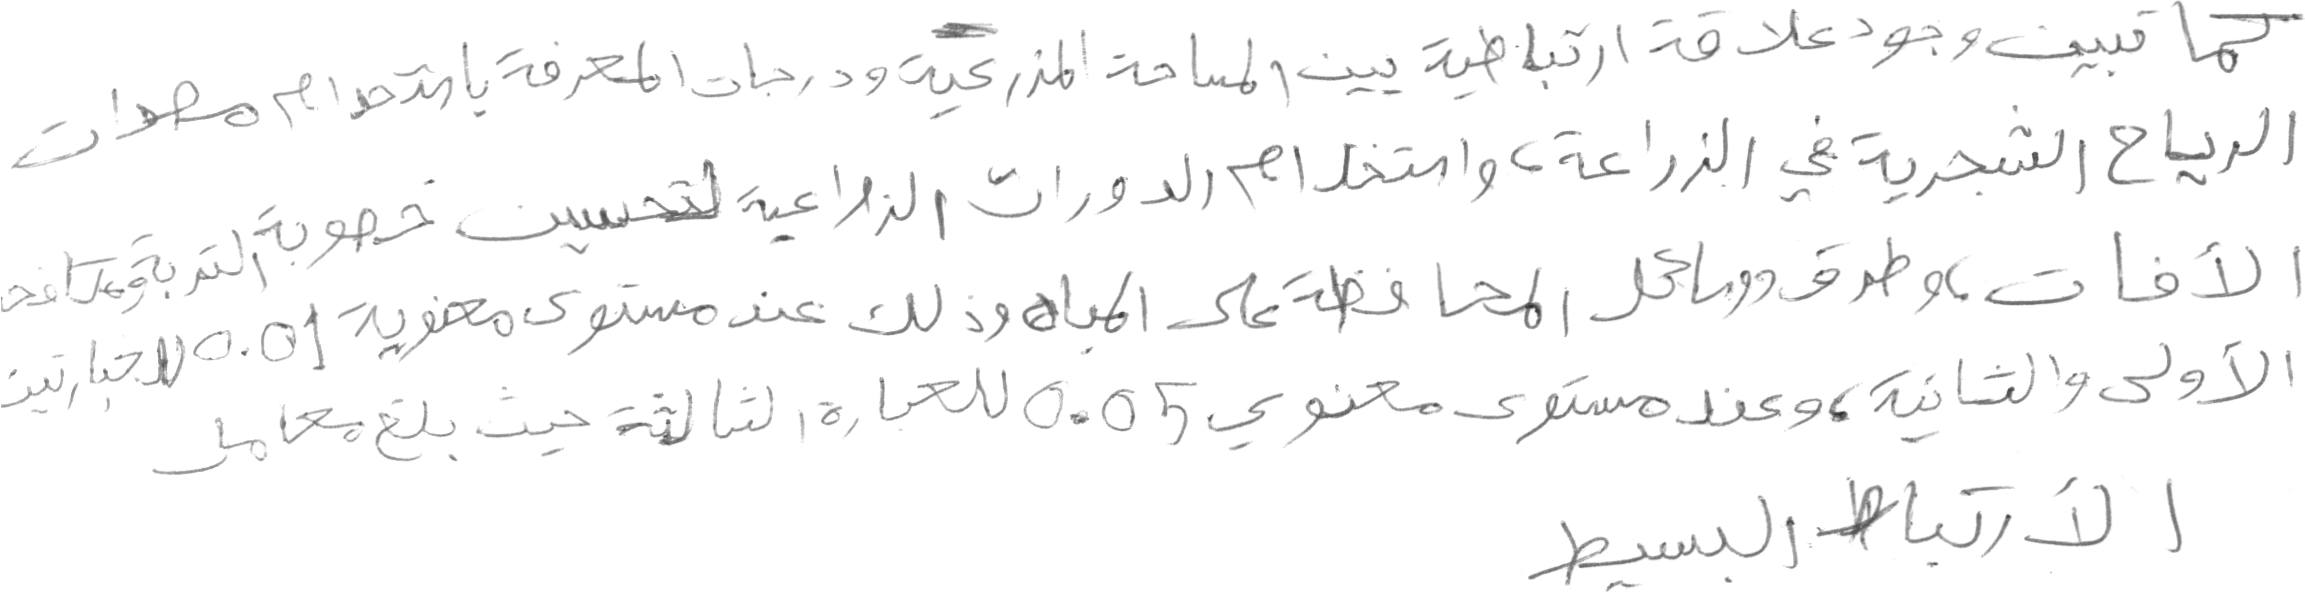 كما تبين وجود علاقة ارتباطية بين المساحة المزرعية ودرجات المعرفة باستخدام مصدات
الرياح الشجرية في الزراعة، واستخدام الدورات الزراعية لتحسين خصوبة التربة ومكافحة
الأفات، وطرق ووسائل المحافظة على المياه وذلك عند مستوى معنوية 0.01 للعبارتين
الأولى والثانية، وعند مستوى معنوي 0.05 للعبارة الثالثة حيث بلغ معامل
الأرتباط البسيط